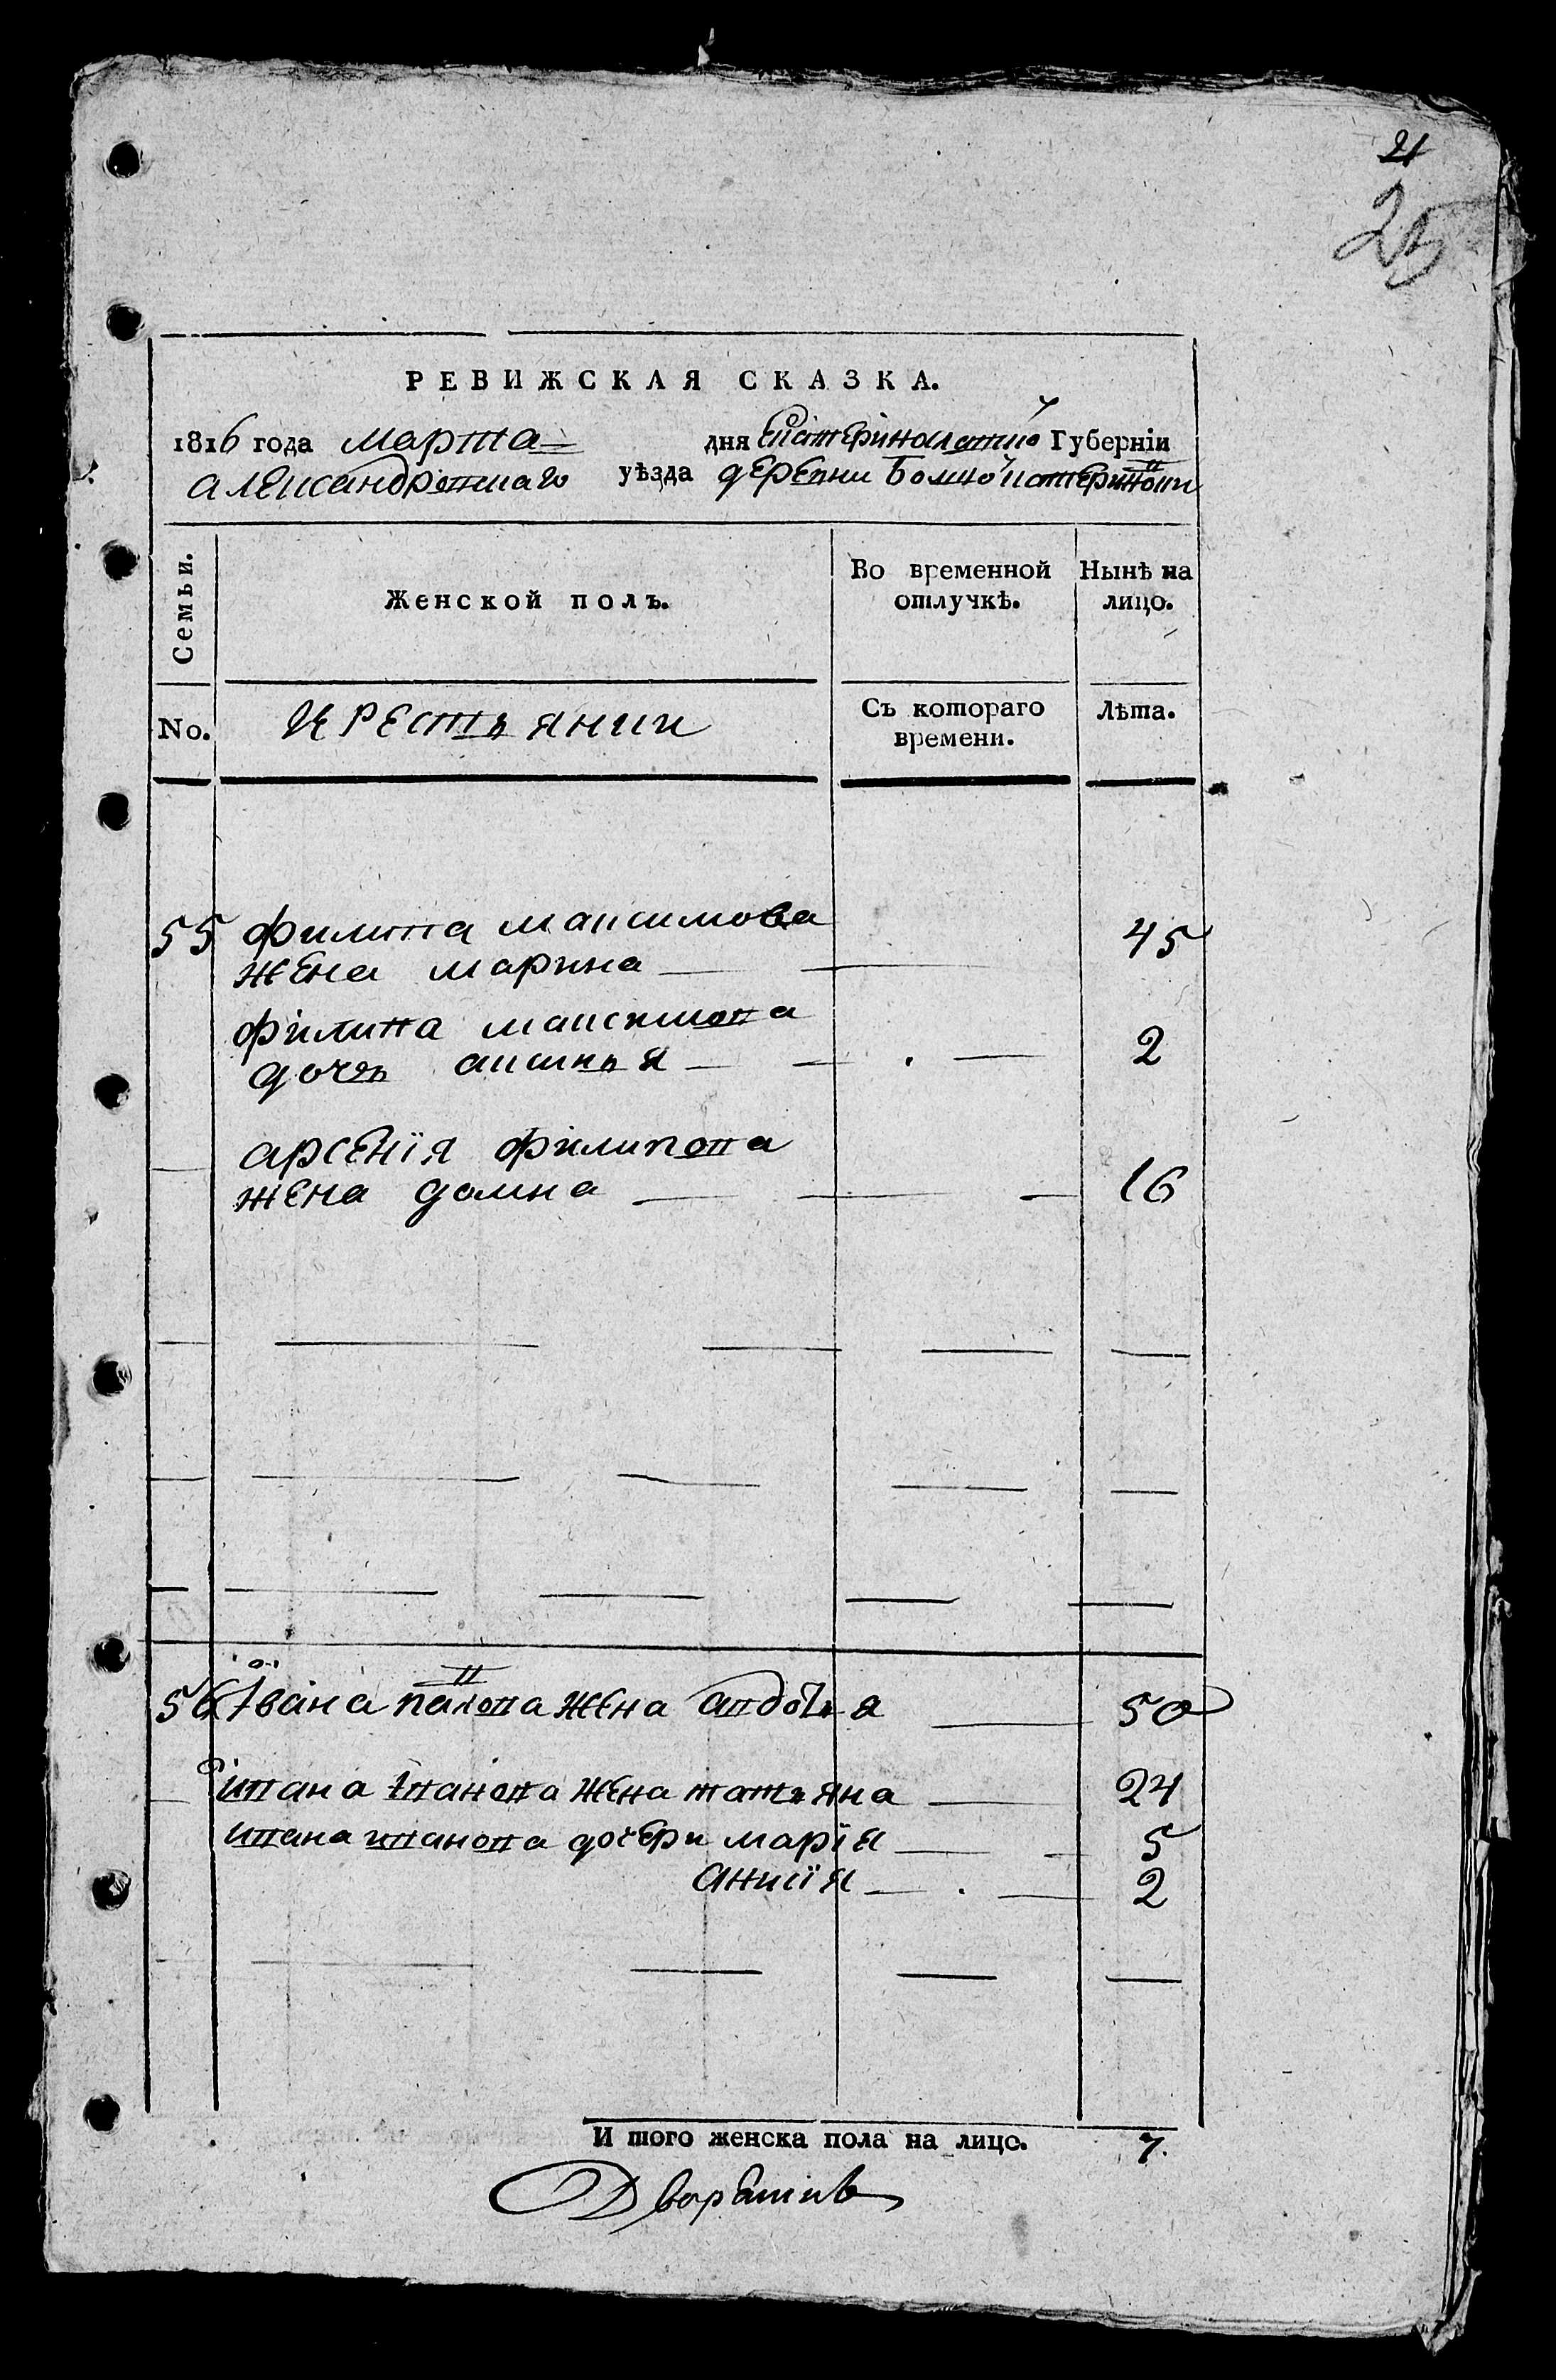 21
25
РЕВИЖСКАЯ СКАЗКА.
1816 года марта дня Екатеринославской Губерніи
александровскаго уѣзда деревни Екатериновки
Семьи. Женской полъ. Во временной отлучкѣ. Нынѣ на лицо.
No. крестьянки Съ котораго времени. Лѣта.
55 филипа максимова
жена марина 45
филипа максимова
дочь аксинья 2
арсенїя филипова
жена домна 16
56 Ивана павлова жена авдотья 50
ивана іванова жена татьяна 24
ивана иванова дочери марїя 5
анисїя 2
И того женска пола на лицо. 7.